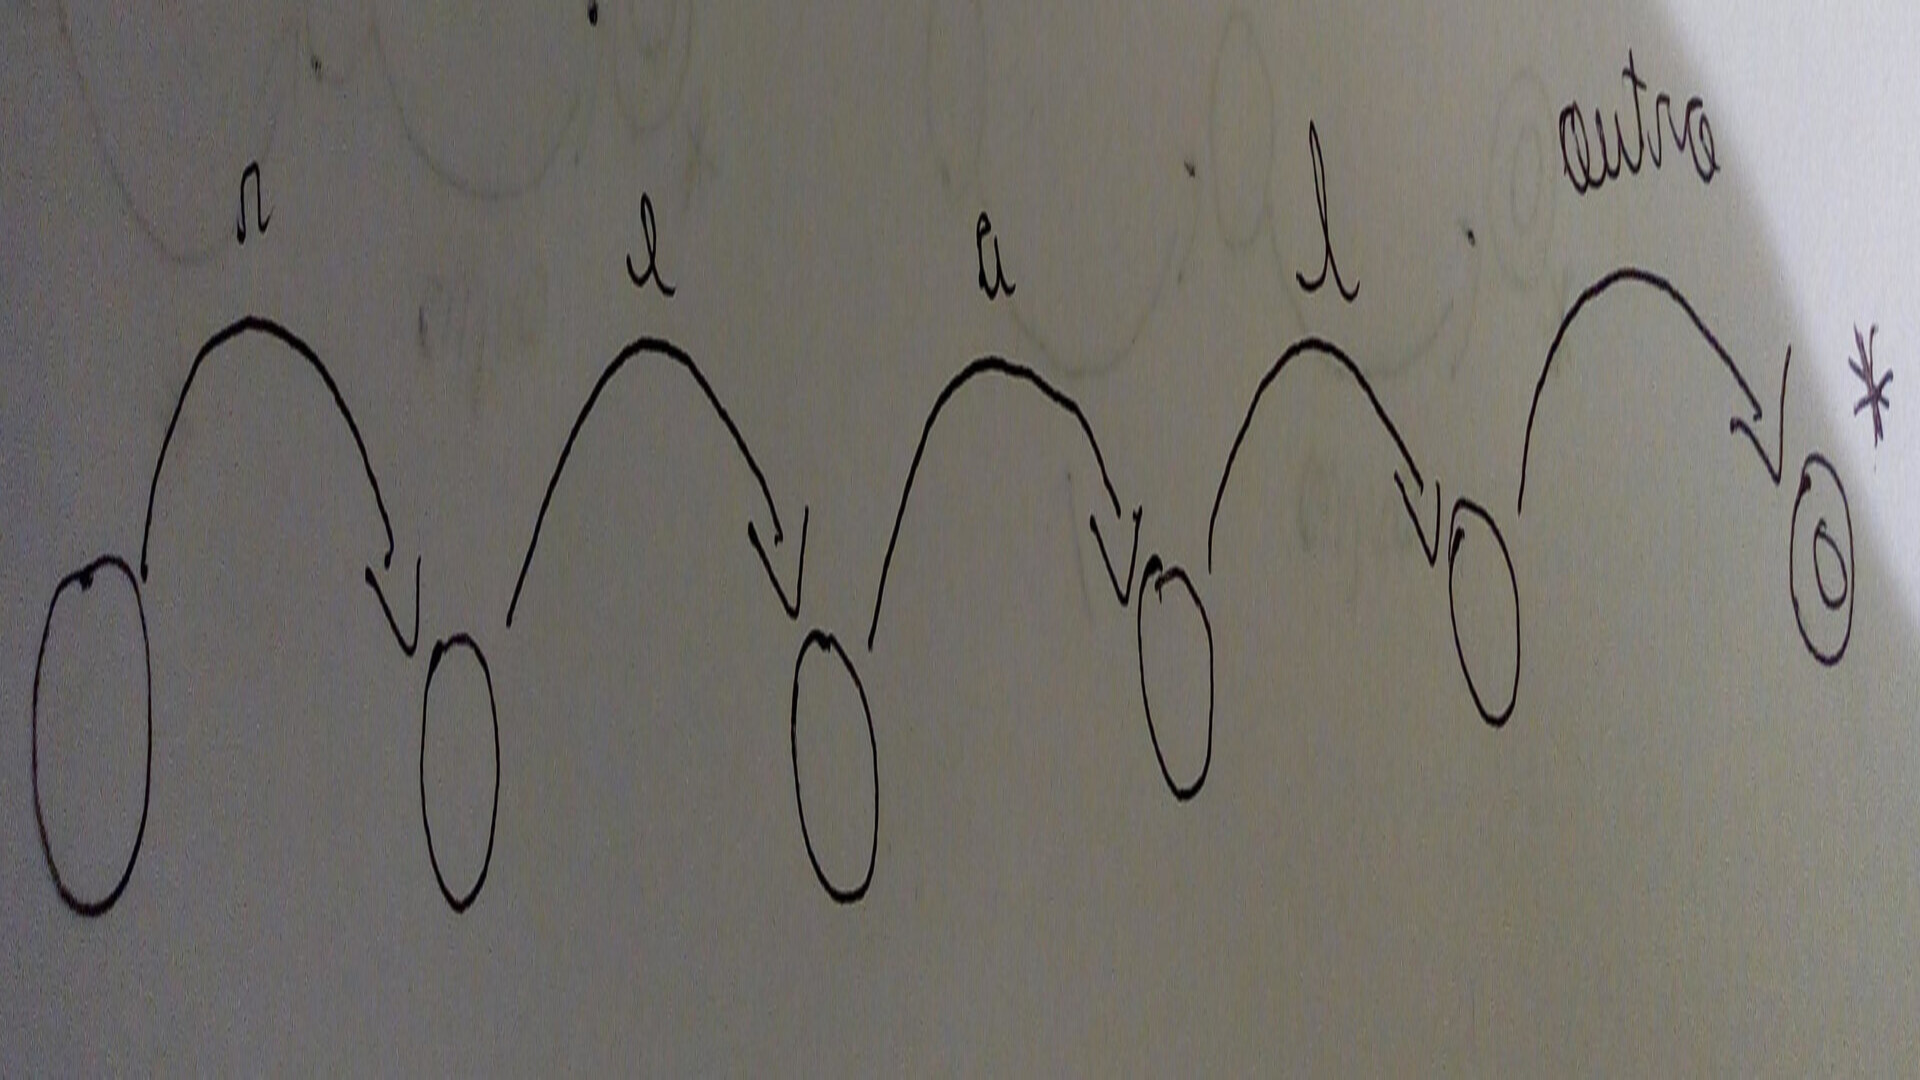 r e a l outro *